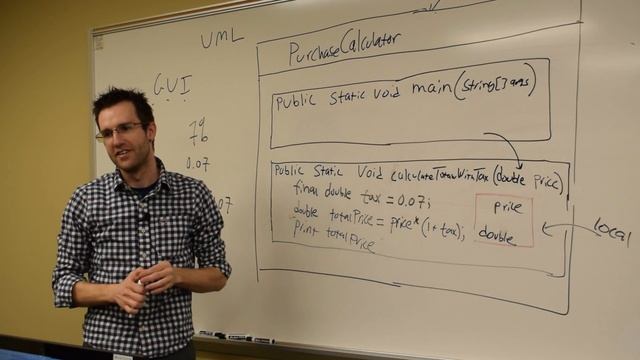 UML
GUI
7%
0.07
07
PurchaseCalculator
Public Static Void main(String[] args)
Public Static Void calculateTotalWithTax(double price)
final double tax = 0.07;
double totalPrice = price*(1+tax);
print totalPrice
price
double
local